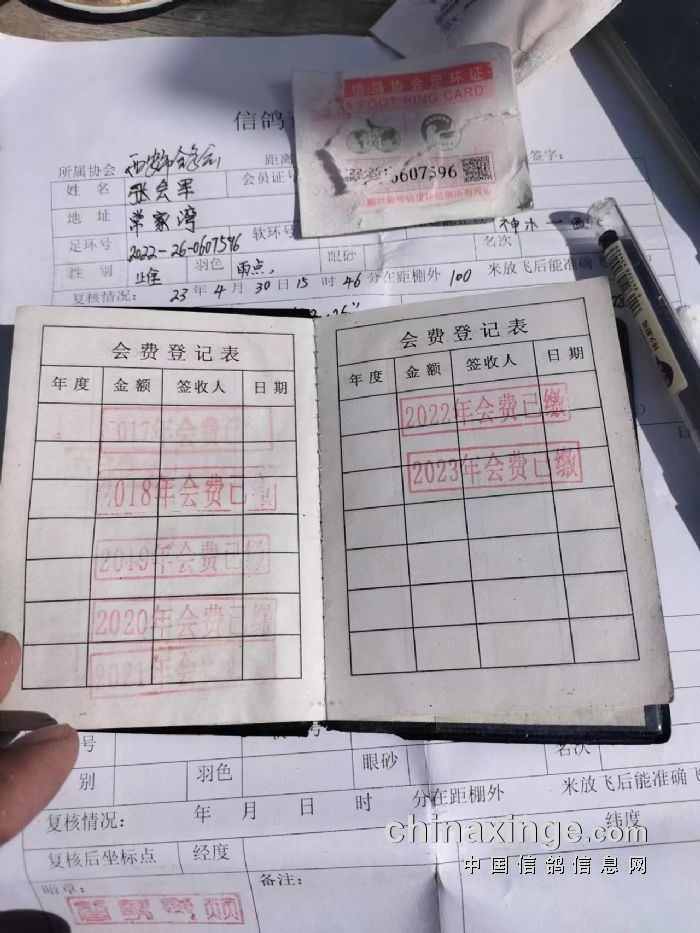 信鸽协会足环证
A FOOT RING CARD
0607596
信鸽
所属协会
距离
签字:
姓 名 张会军
会员证号
地 址 常家湾
足环号 2022-26-0607596
软环号
名次
性 别 雄
羽色 雨点
眼砂
复核情况: 23 年 4 月 30 日 15 时 46 分在距棚外 100 米放飞后能准确飞
会费登记表
年度 金额 签收人 日期
2017年会费已
2018年会费已缴
2019年会费已缴
2020年会费已缴
2021年会费
会费登记表
年度 金额 签收人 日期
2022年会费已缴
2023年会费已缴
号
眼砂
名次
别
羽色
米放飞后能准确飞
复核情况: 年 月 日 时 分在距棚外
纬度
复核后坐标点 经度
chinaxinge.com
中国信鸽信息网
备注: